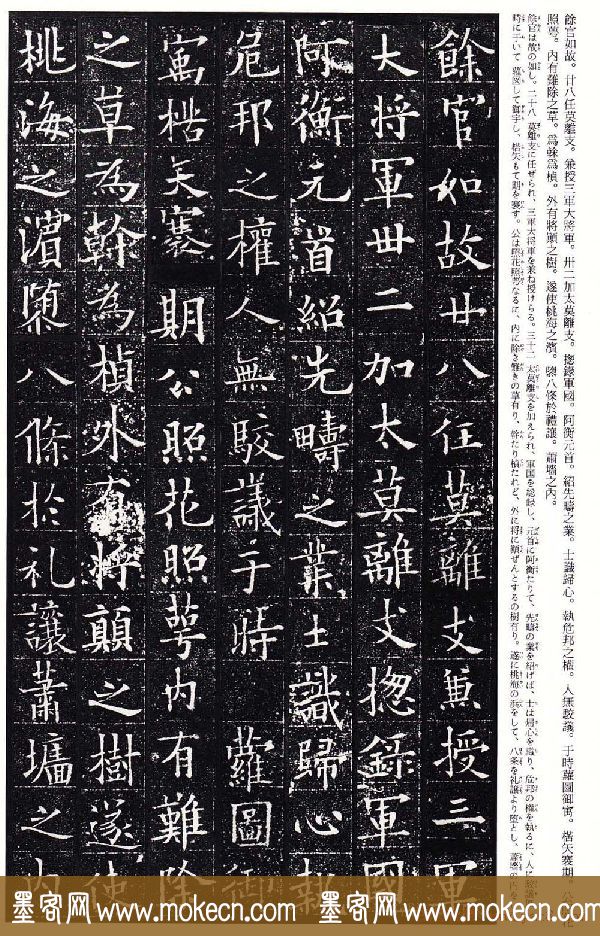 餘官如故。廿八任莫離支。兼授三軍大將軍。卅二加太莫離支。揔錄軍國。阿衡元首。紹先疇之業。士識歸心。執危邦之權。人無駮議。于時蘿圖御寓。楛矢褰期。公照花
照萼。內有難除之草。爲幹爲楨。外有將顛之樹。遂使桃海之濱。隳八條於禮讓。蕭墻之內。
餘官は故の如し。二十八 莫離支に任ぜられ、三軍大将軍を兼ね授けらる。三十二 太莫離支を加えられ、軍国を揔録し、元首に阿衡たりて、先疇の業を紹げば、士は帰心を識り、危邦の権を執るに、人に駮議
時に于いて 蘿図して御宇し、楛矢もて期を褰す。公は照花照萼なるに、内に除き難きの草有り、幹たり楨たれど、外に将に顛ぜんとするの樹有り。遂に桃海の浜をして、八条を礼譲より隳とし、蕭牆の内
餘官如故廿八任莫離支兼授三軍
大将軍卅二加太莫離支揔錄軍國
阿衡元首紹先疇之業士識歸心執
危邦之權人無駮議于時蘿圖御
寓楛矢褰期公照花照萼內有難除
之草為幹為楨外有將顛之樹遂使
桃海之濱隳八條於礼讓蕭墻之內
墨客网 www.mokecn.com 墨客网 www.mokecn.com